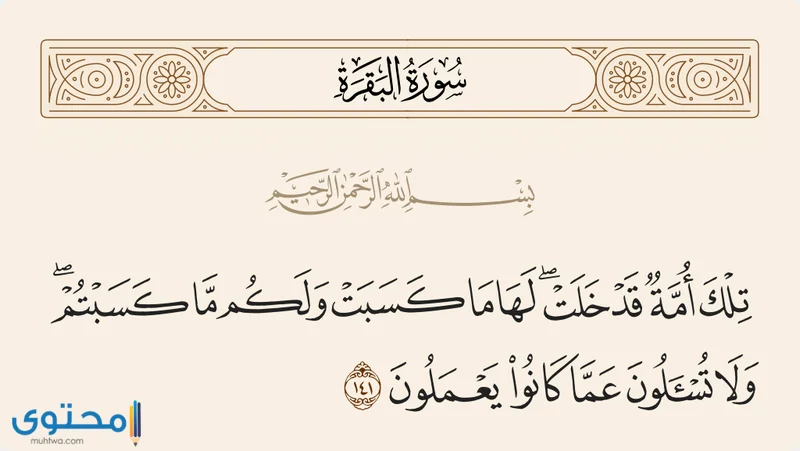 سُورَةُ البَقَرَةِ
بِسْمِ ٱللَّهِ ٱلرَّحْمَٰنِ ٱلرَّحِيمِ
تِلْكَ أُمَّةٌ قَدْ خَلَتْ ۖ لَهَا مَا كَسَبَتْ وَلَكُم مَّا كَسَبْتُمْ ۖ
وَلَا تُسْـَٔلُونَ عَمَّا كَانُوا۟ يَعْمَلُونَ ١٤١
محتوى
muhtwa.com